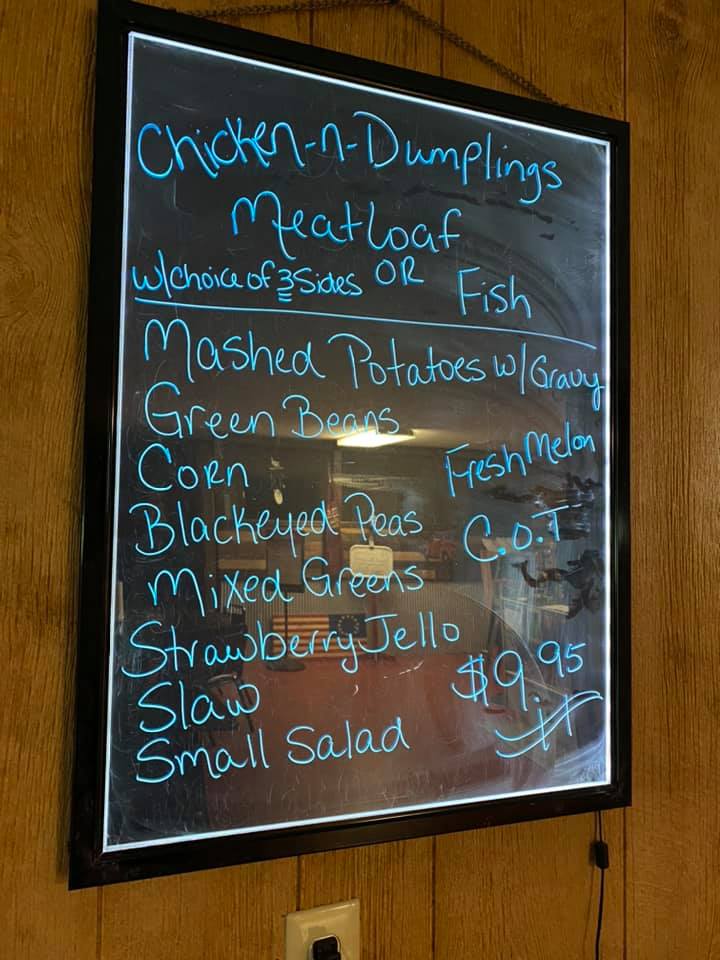 Chicken-n-Dumplings
Meatloaf
w/choice of 3 Sides OR Fish
Mashed Potatoes w/Gravy
Green Beans
Corn
Fresh Melon
Blackeyed Peas
C.O.T
Mixed Greens
Strawberry Jello
Slaw
$9.95
Small Salad